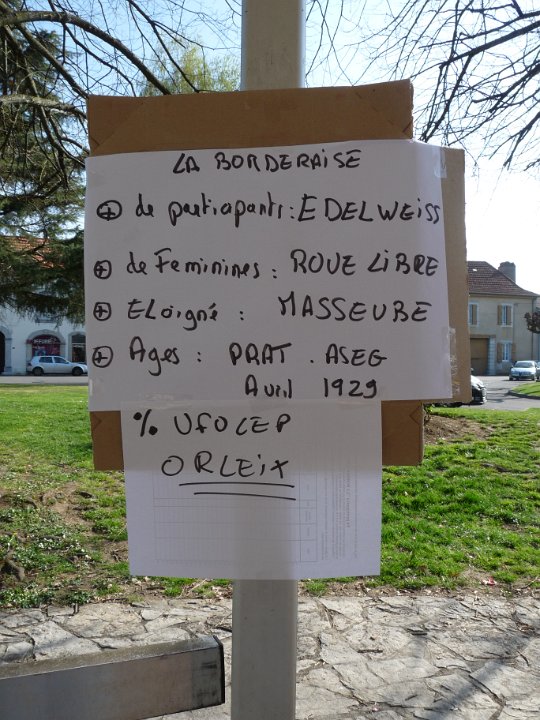 LA BORDERAISE
⊕ de partiapants: EDELWEISS
⊕ de Feminines : ROUE LIBRE
⊕ ELoigné : MASSEUBE
⊕ Ages : PRAT . ASEG
Avril 1929
% UFOLEP
ORLEIX